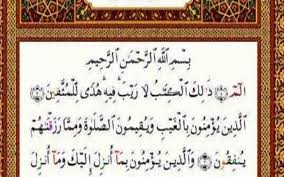 بِسْمِ ٱللَّهِ ٱلرَّحْمَٰنِ ٱلرَّحِيمِ
الٓمٓ ۝ ذَٰلِكَ ٱلْكِتَٰبُ لَا رَيْبَ فِيهِ هُدًى لِّلْمُتَّقِينَ ۝
ٱلَّذِينَ يُؤْمِنُونَ بِٱلْغَيْبِ وَيُقِيمُونَ ٱلصَّلَوٰةَ وَمِمَّا رَزَقْنَٰهُمْ
يُنفِقُونَ ۝ وَٱلَّذِينَ يُؤْمِنُونَ بِمَآ أُنزِلَ إِلَيْكَ وَمَآ أُنزِلَ